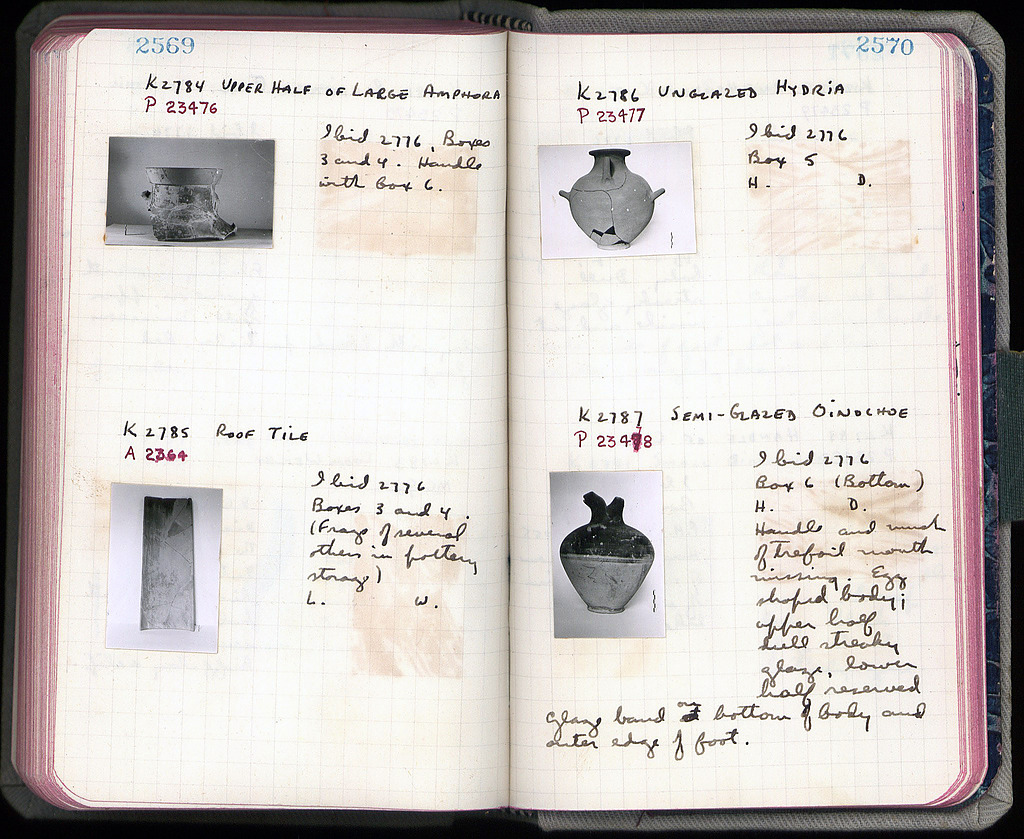 2569
K 2784 UPPER HALF OF LARGE AMPHORA
P 23476
Ibid 2776, Boxes
3 and 4. Handle
with box 6.
K 2785 ROOF TILE
A 2364
Ibid 2776
Boxes 3 and 4.
(Frags of several
others in pottery
storage)
L. W.
2570
K 2786 UNGLAZED HYDRIA
P 23477
Ibid 2776
Box 5
H. D.
K 2787 SEMI-GLAZED OINOCHOE
P 23478
Ibid 2776
Box 6 (Bottom)
H. D.
Handle and much
of trefoil mouth
missing. Egg
shaped body;
upper half
dull streaky
glaze, lower
half reserved
glaze band on bottom of body and
outer edge of foot.